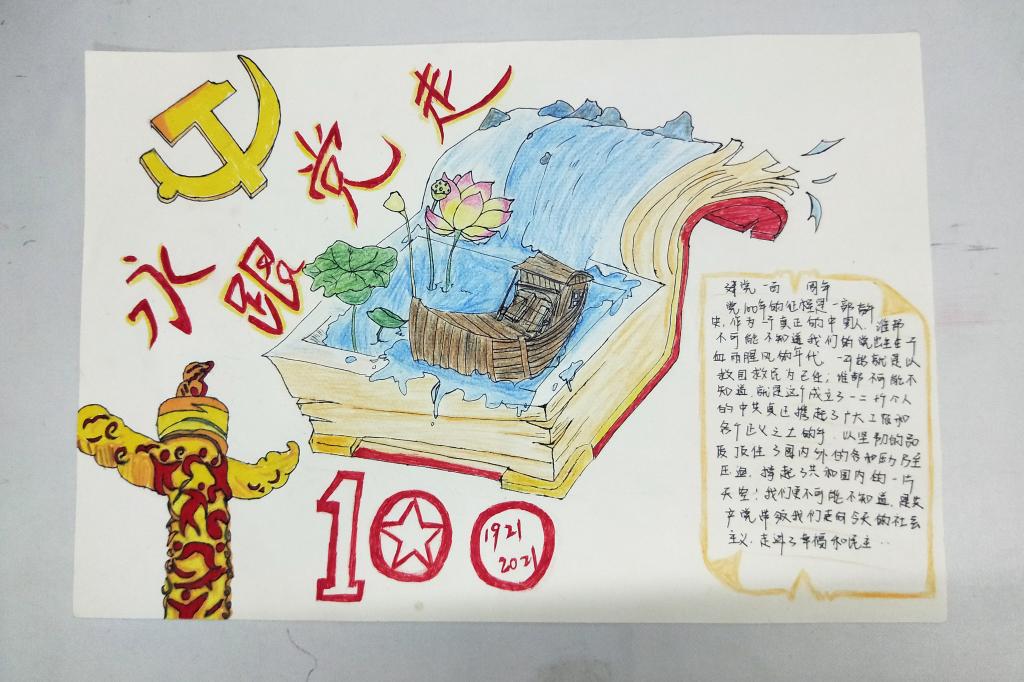 永跟党走
100
1921
2021
建党一百 周年
党100年的征程是一部奋斗
史,作为一个真正的中国人,谁都
不可能不知道我们的党出生于
血雨腥风的年代,一开始就是以
救国救民为己任;谁都不可能不
知道,就是这个成立了一二十个人
的中共 携起了广大工农和
各个正义之士的手,以坚韧的品
质顶住了国内外的各种
压迫,撑起了共和国内的一片
天空!我们更不可能不知道,是共
产党带领我们走向今天的社会
主义,走进了幸福和民主…